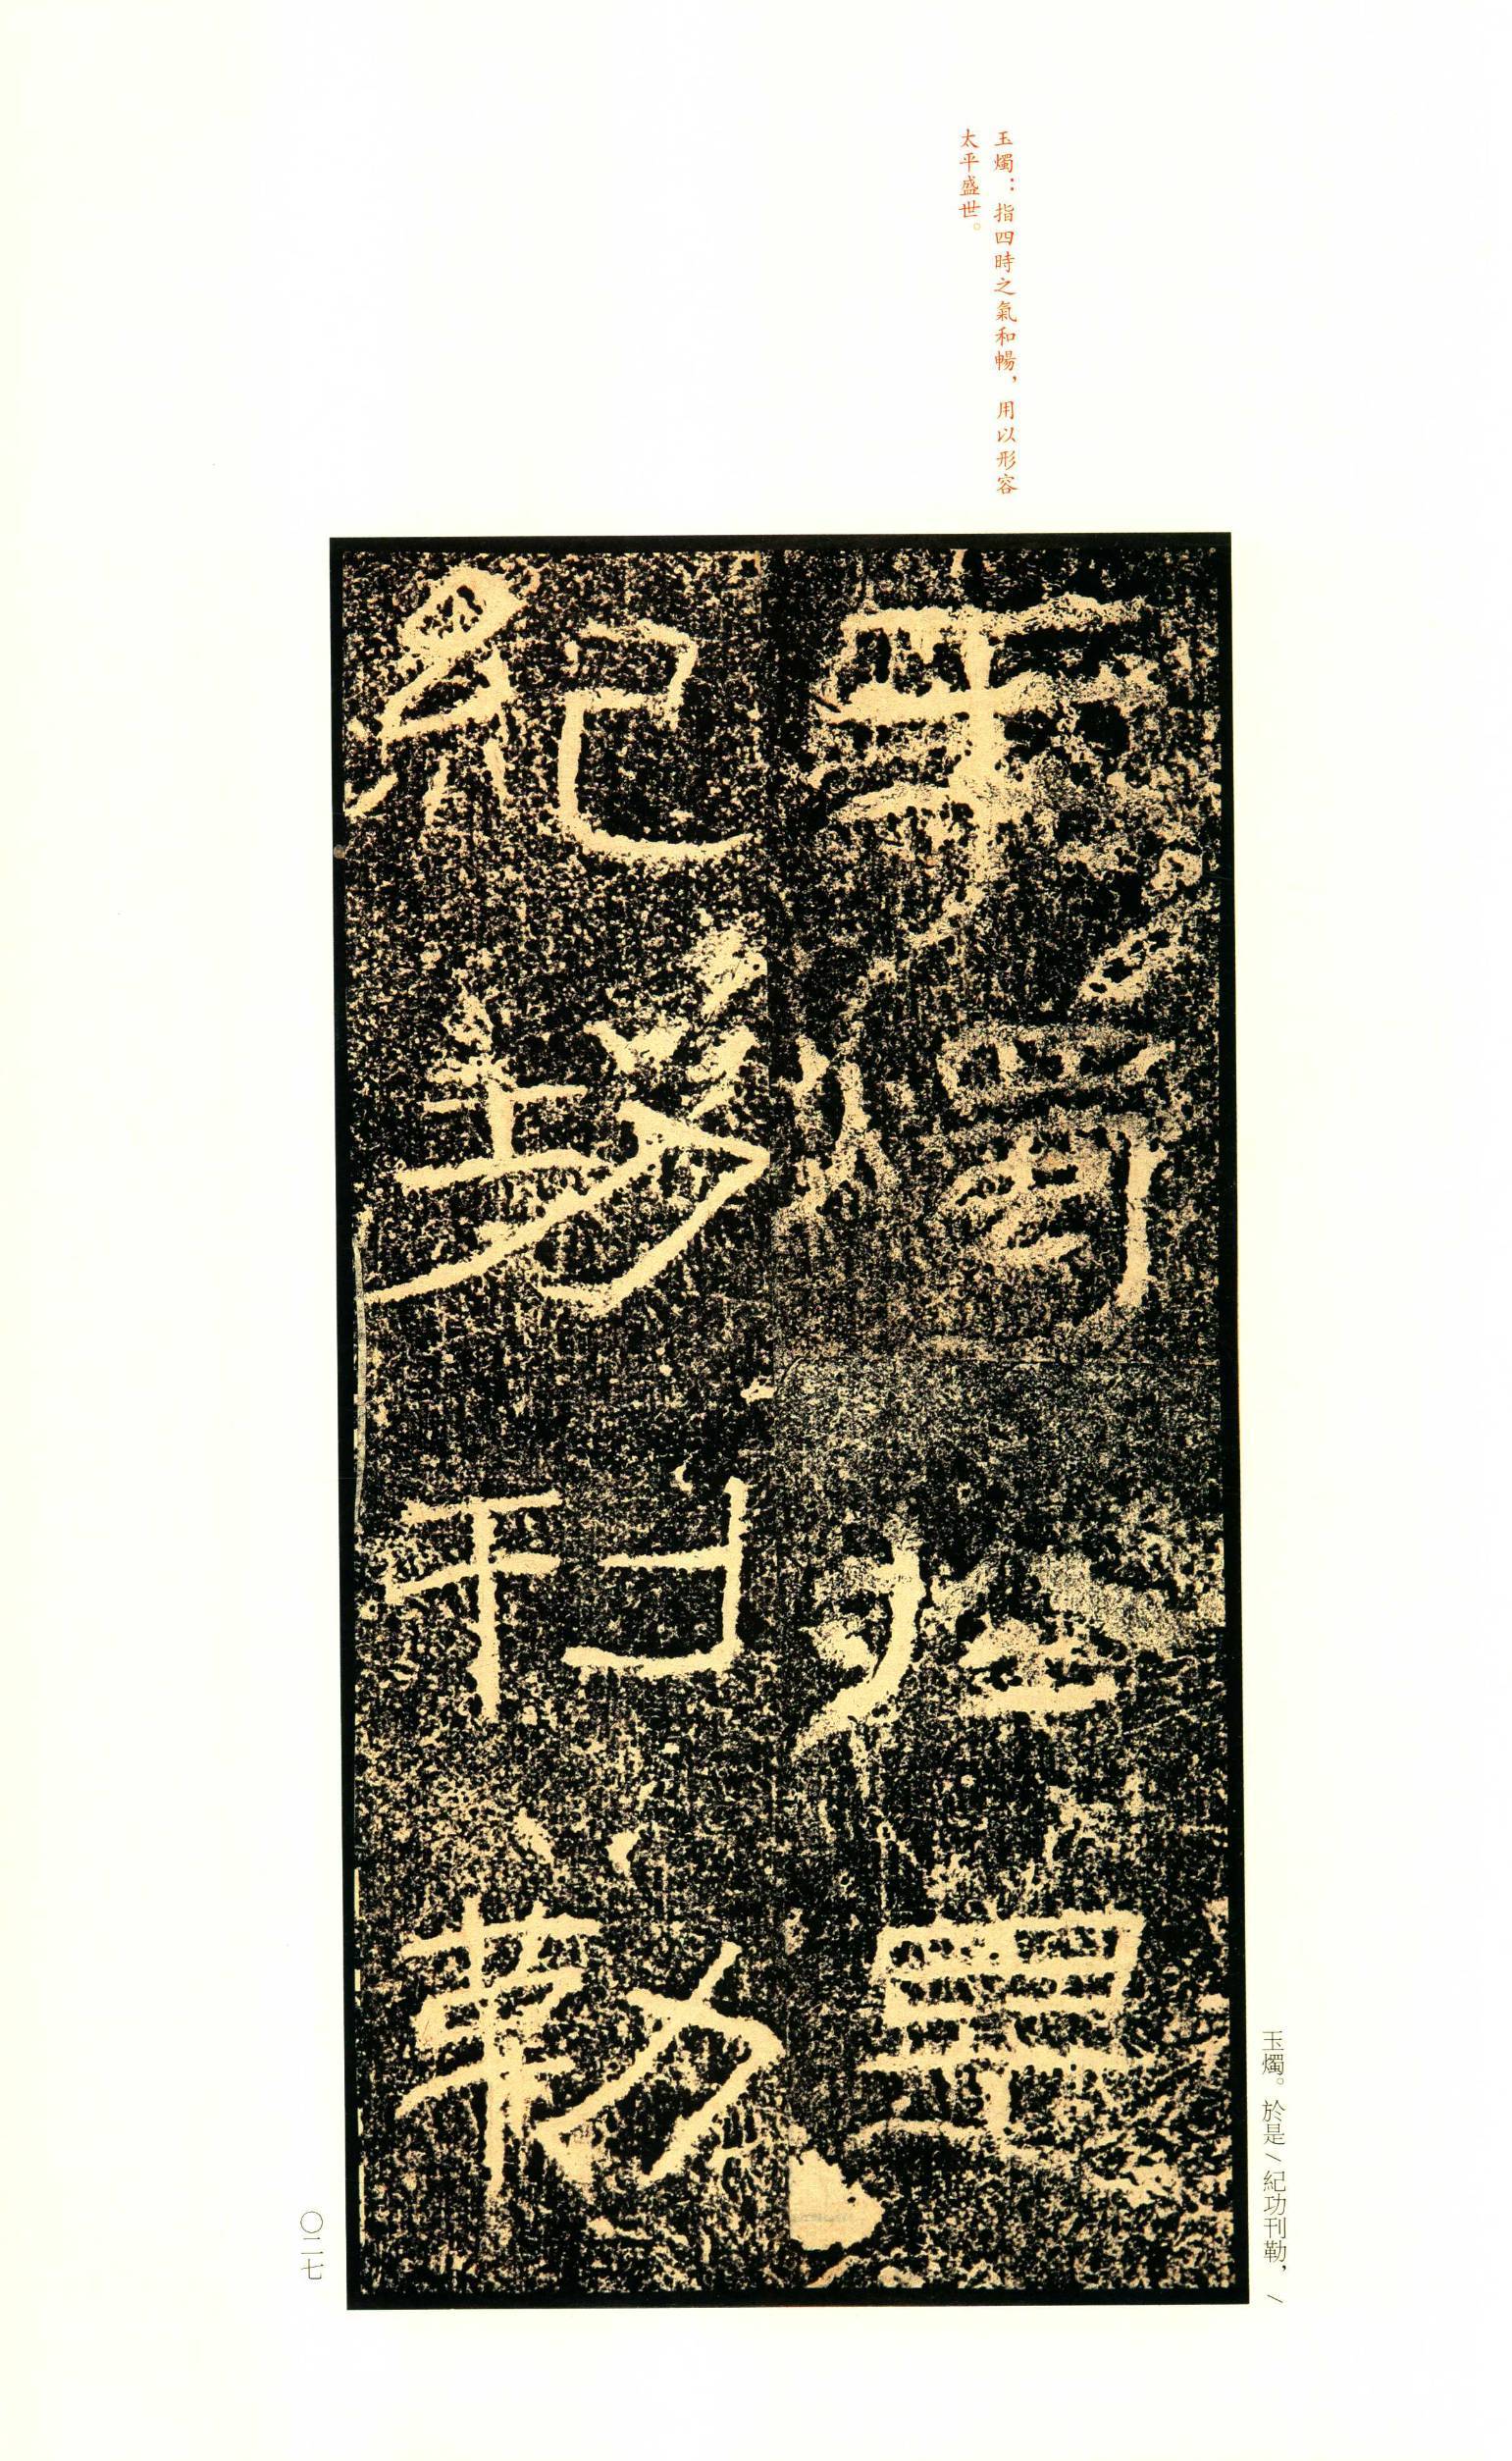 玉燭：指四時之氣和暢，用以形容
太平盛世。
玉燭於是
紀功刊勒
玉燭。於是／紀功刊勒，／
〇二七